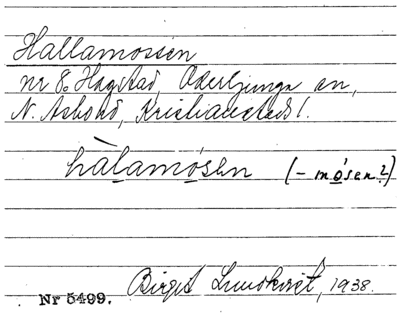 Hallamossen
nr 8. Hagstad, Oderljunga sn,
N. Åsbo hd, Kristianstads l.
hàlamósen (-mósen?)
Birgit Lundkvist, 1938.
Nr 5499.